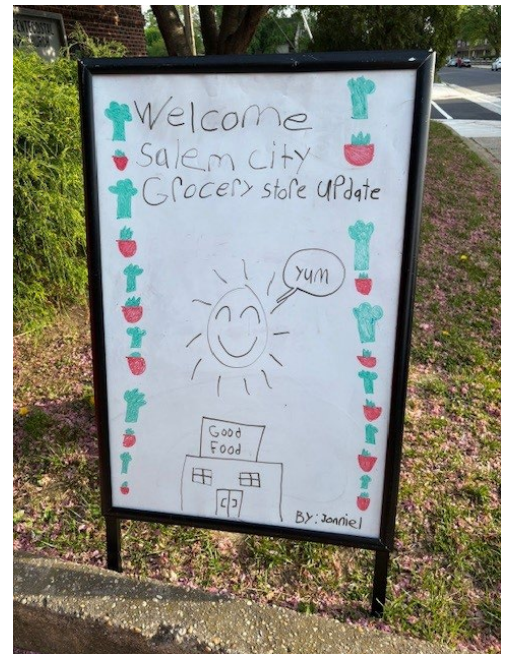 Welcome
Salem city
Grocery store update
yum
Good
Food
BY: Jonniel